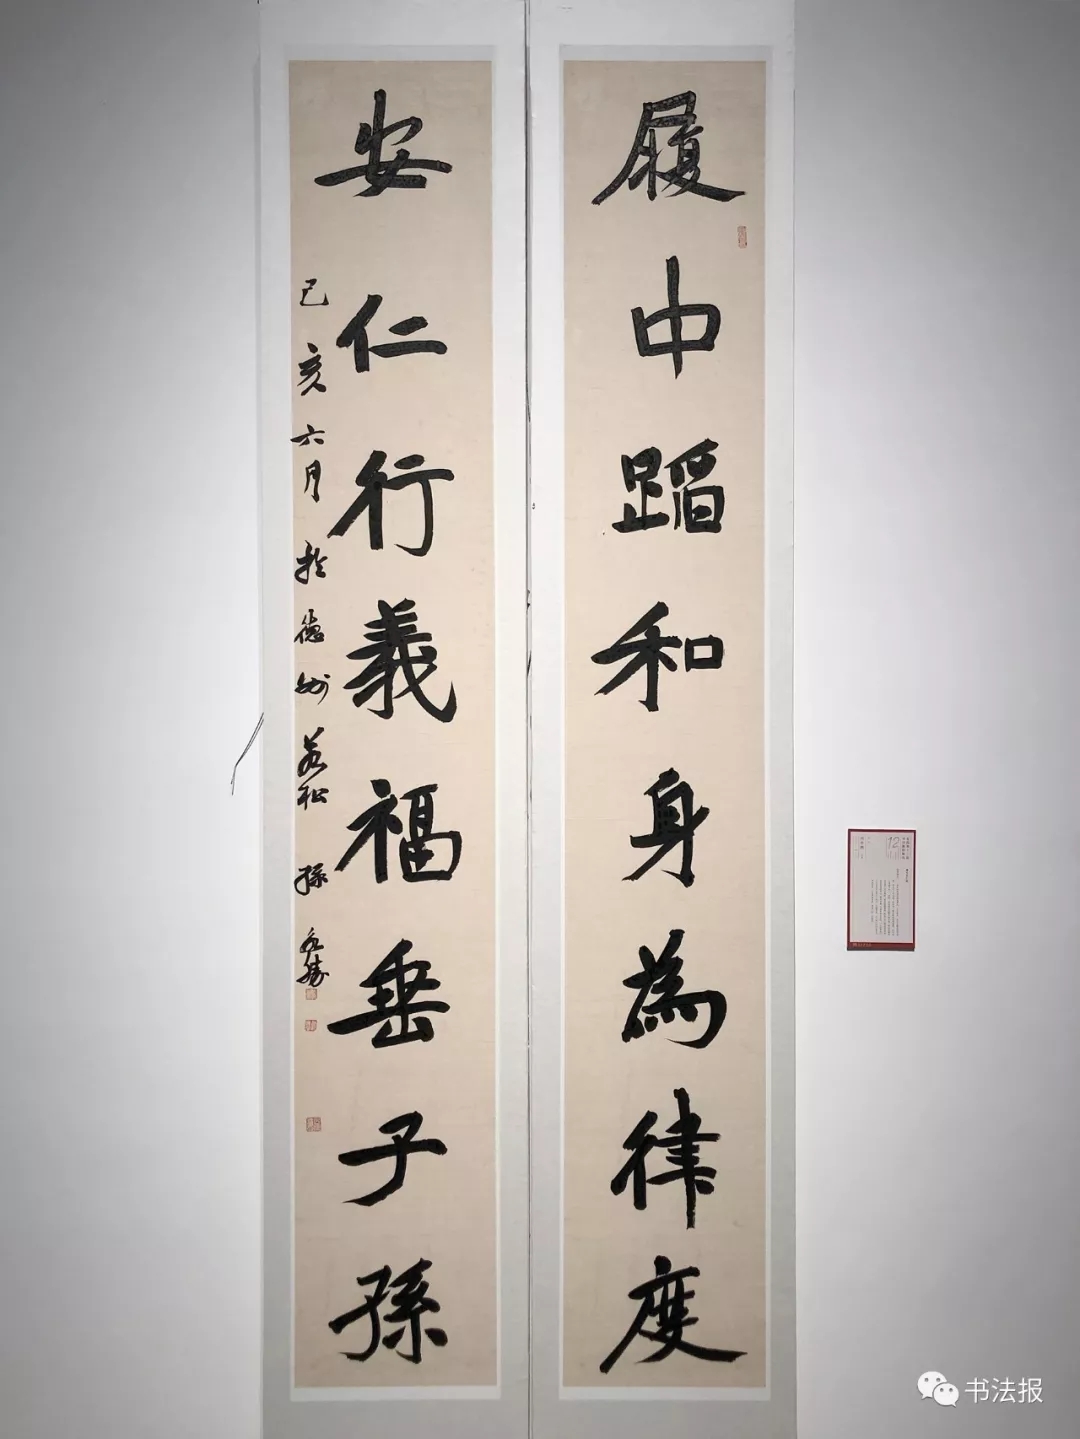 履中蹈和身為律度
安仁行義福垂子孫
己亥六月於德州若松孫永勝
12
书法报